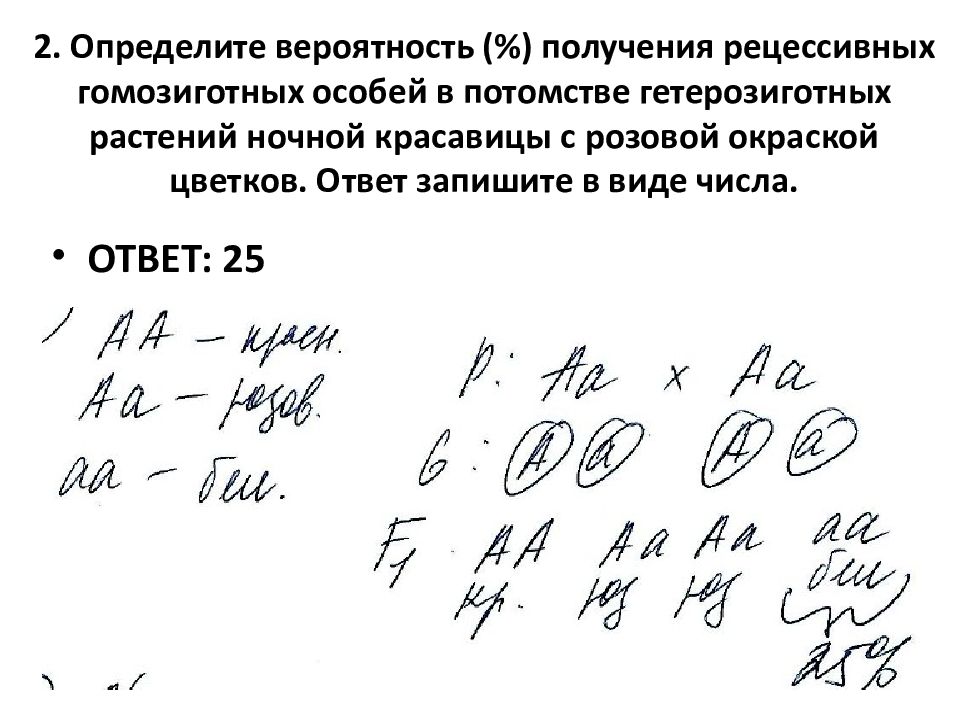 2. Определите вероятность (%) получения рецессивных
гомозиготных особей в потомстве гетерозиготных
растений ночной красавицы с розовой окраской
цветков. Ответ запишите в виде числа.
• ОТВЕТ: 25
АА – красн.
Аа – розов.
аа – бел.
Р: Аа х Аа
G: А а А а
F1 АА Аа Аа аа
кр. роз роз бел
25%